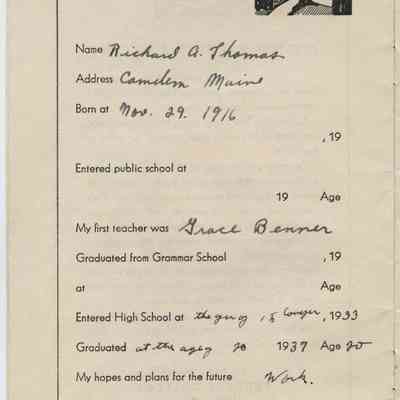 Name Richard A. Thomas
Address Camden Maine
Born at Nov. 29. 1916
, 19
Entered public school at
19 Age
My first teacher was Grace Benner
Graduated from Grammar School , 19
at Age
Entered High School at the age of 15 , 1933
Graduated at the age of 20 1937 Age 20
My hopes and plans for the future Work.